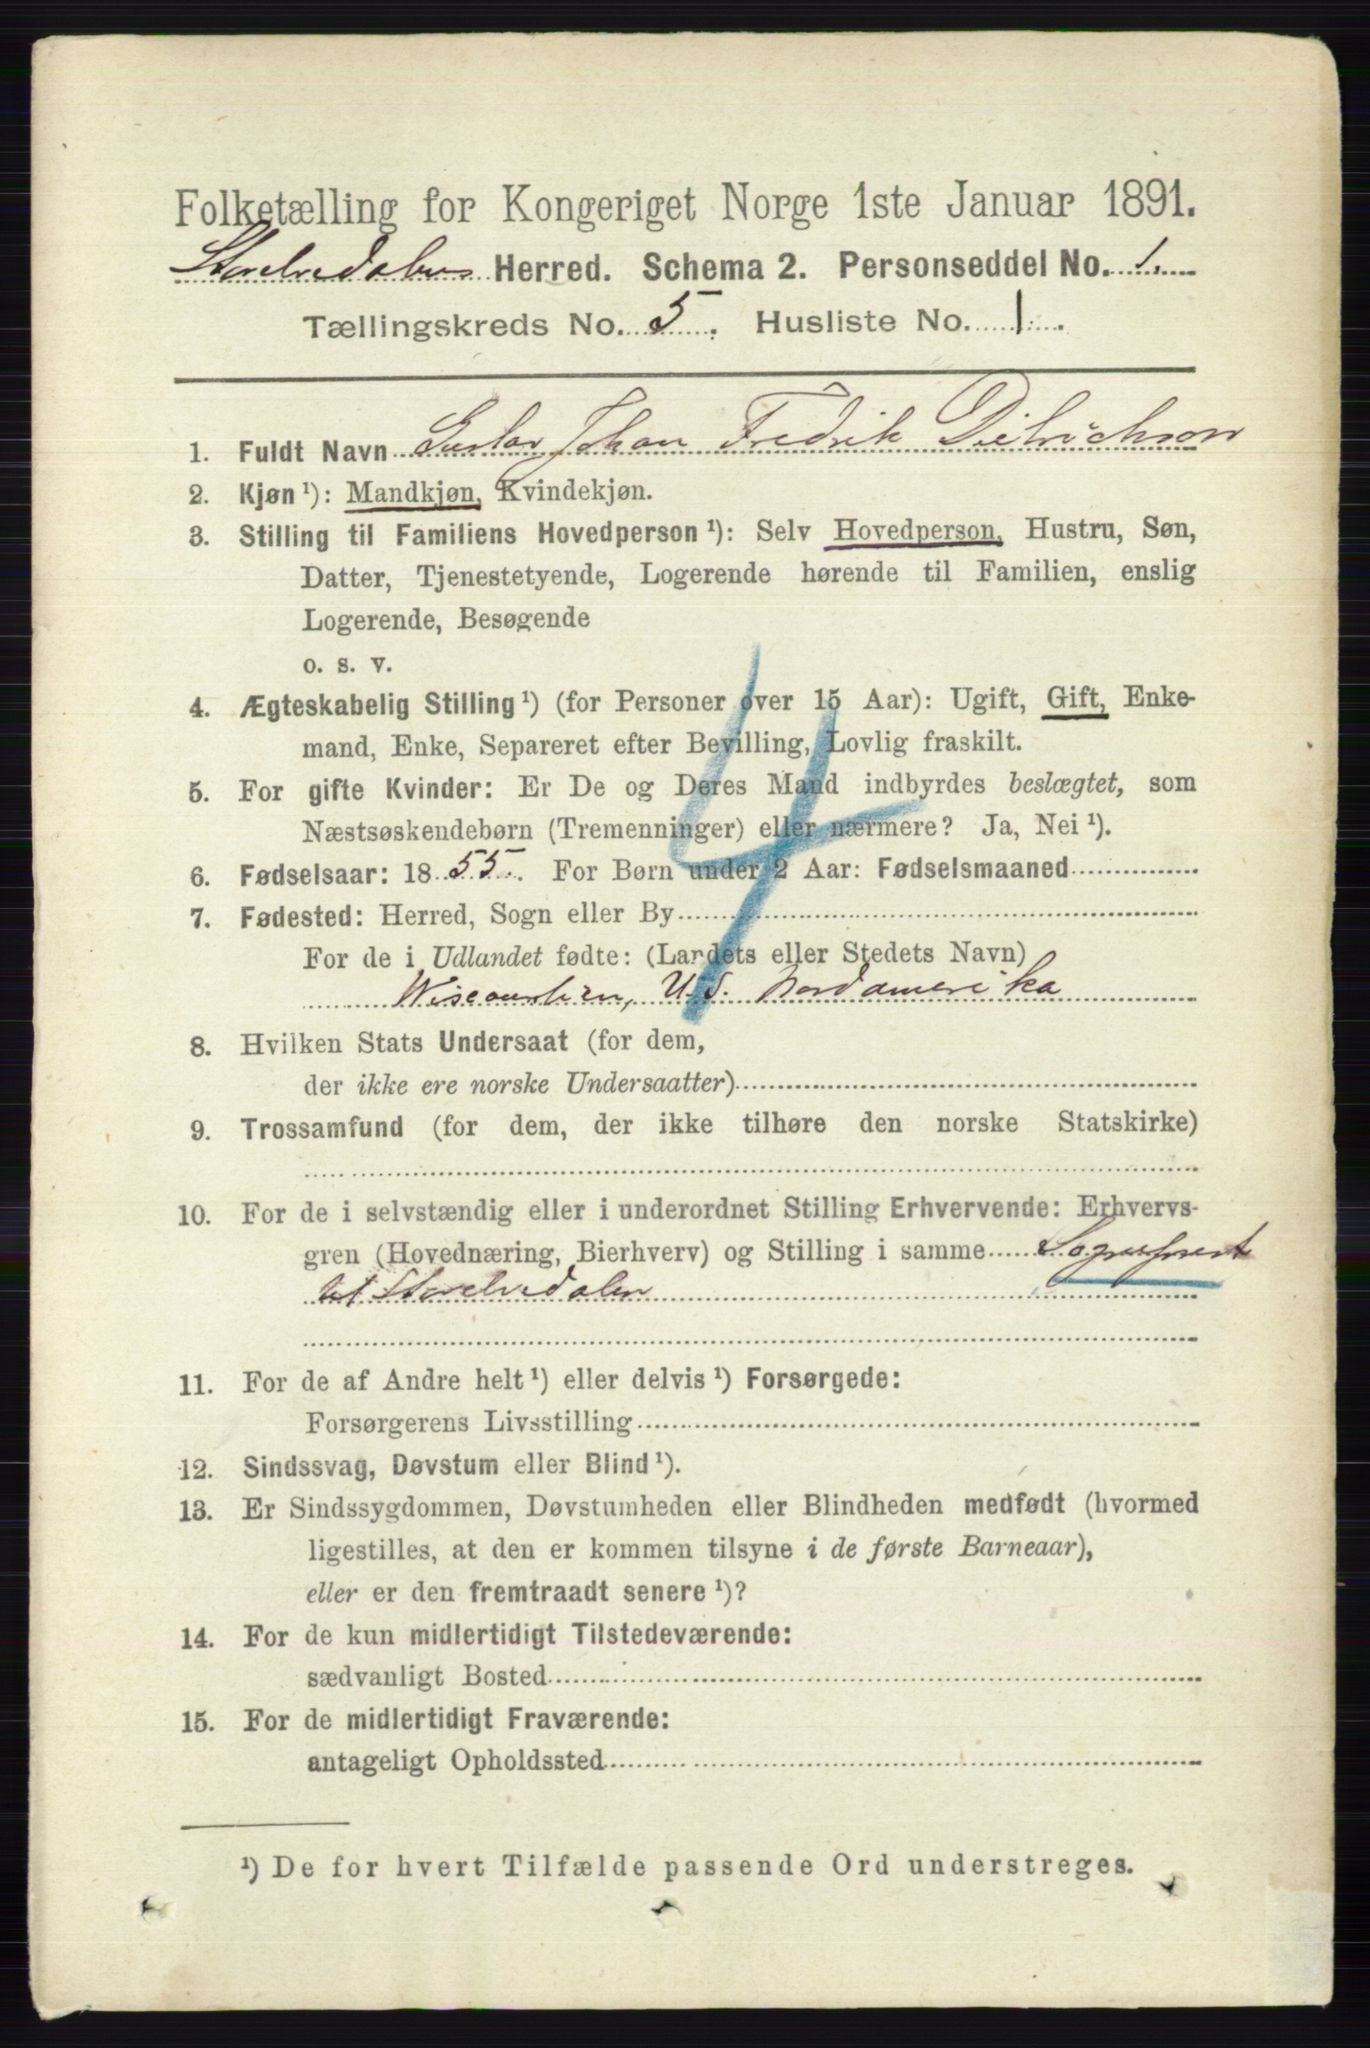 Folketælling for Kongeriget Norge 1ste Januar 1891.
Storelvedalens Herred. Schema 2. Personseddel No. 1.
Tællingskreds No. 5. Husliste No. 1.
1. Fuldt Navn Gustav Johan Fredrik Dietrichson
2. Kjøn¹): Mandkjøn, Kvindekjøn.
3. Stilling til Familiens Hovedperson¹): Selv Hovedperson, Hustru, Søn,
Datter, Tjenestetyende, Logerende hørende til Familien, enslig
Logerende, Besøgende
o. s. v.
4. Ægteskabelig Stilling¹) (for Personer over 15 Aar): Ugift, Gift, Enke-
mand, Enke, Separeret efter Bevilling, Lovlig fraskilt.
4
5. For gifte Kvinder: Er De og Deres Mand indbyrdes beslægtet, som
Næstsøskendebørn (Tremenninger) eller nærmere? Ja, Nei¹).
6. Fødselsaar: 1855. For Børn under 2 Aar: Fødselsmaaned
7. Fødested: Herred, Sogn eller By
For de i Udlandet fødte: (Landets eller Stedets Navn)
Wisconsien, U.S. Nordamerika
8. Hvilken Stats Undersaat (for dem,
der ikke ere norske Undersaatter)
9. Trossamfund (for dem, der ikke tilhøre den norske Statskirke)
10. For de i selvstændig eller i underordnet Stilling Erhvervende: Erhvervs-
gren (Hovednæring, Bierhverv) og Stilling i samme Sogneprest
til Storelvedalen
11. For de af Andre helt¹) eller delvis¹) Forsørgede:
Forsørgerens Livsstilling
12. Sindssvag, Døvstum eller Blind¹).
13. Er Sindssygdommen, Døvstumheden eller Blindheden medfødt (hvormed
ligestilles, at den er kommen tilsyne i de første Barneaar),
eller er den fremtraadt senere¹)?
14. For de kun midlertidigt Tilstedeværende:
sædvanligt Bosted
15. For de midlertidigt Fraværende:
antageligt Opholdssted
¹) De for hvert Tilfælde passende Ord understreges.